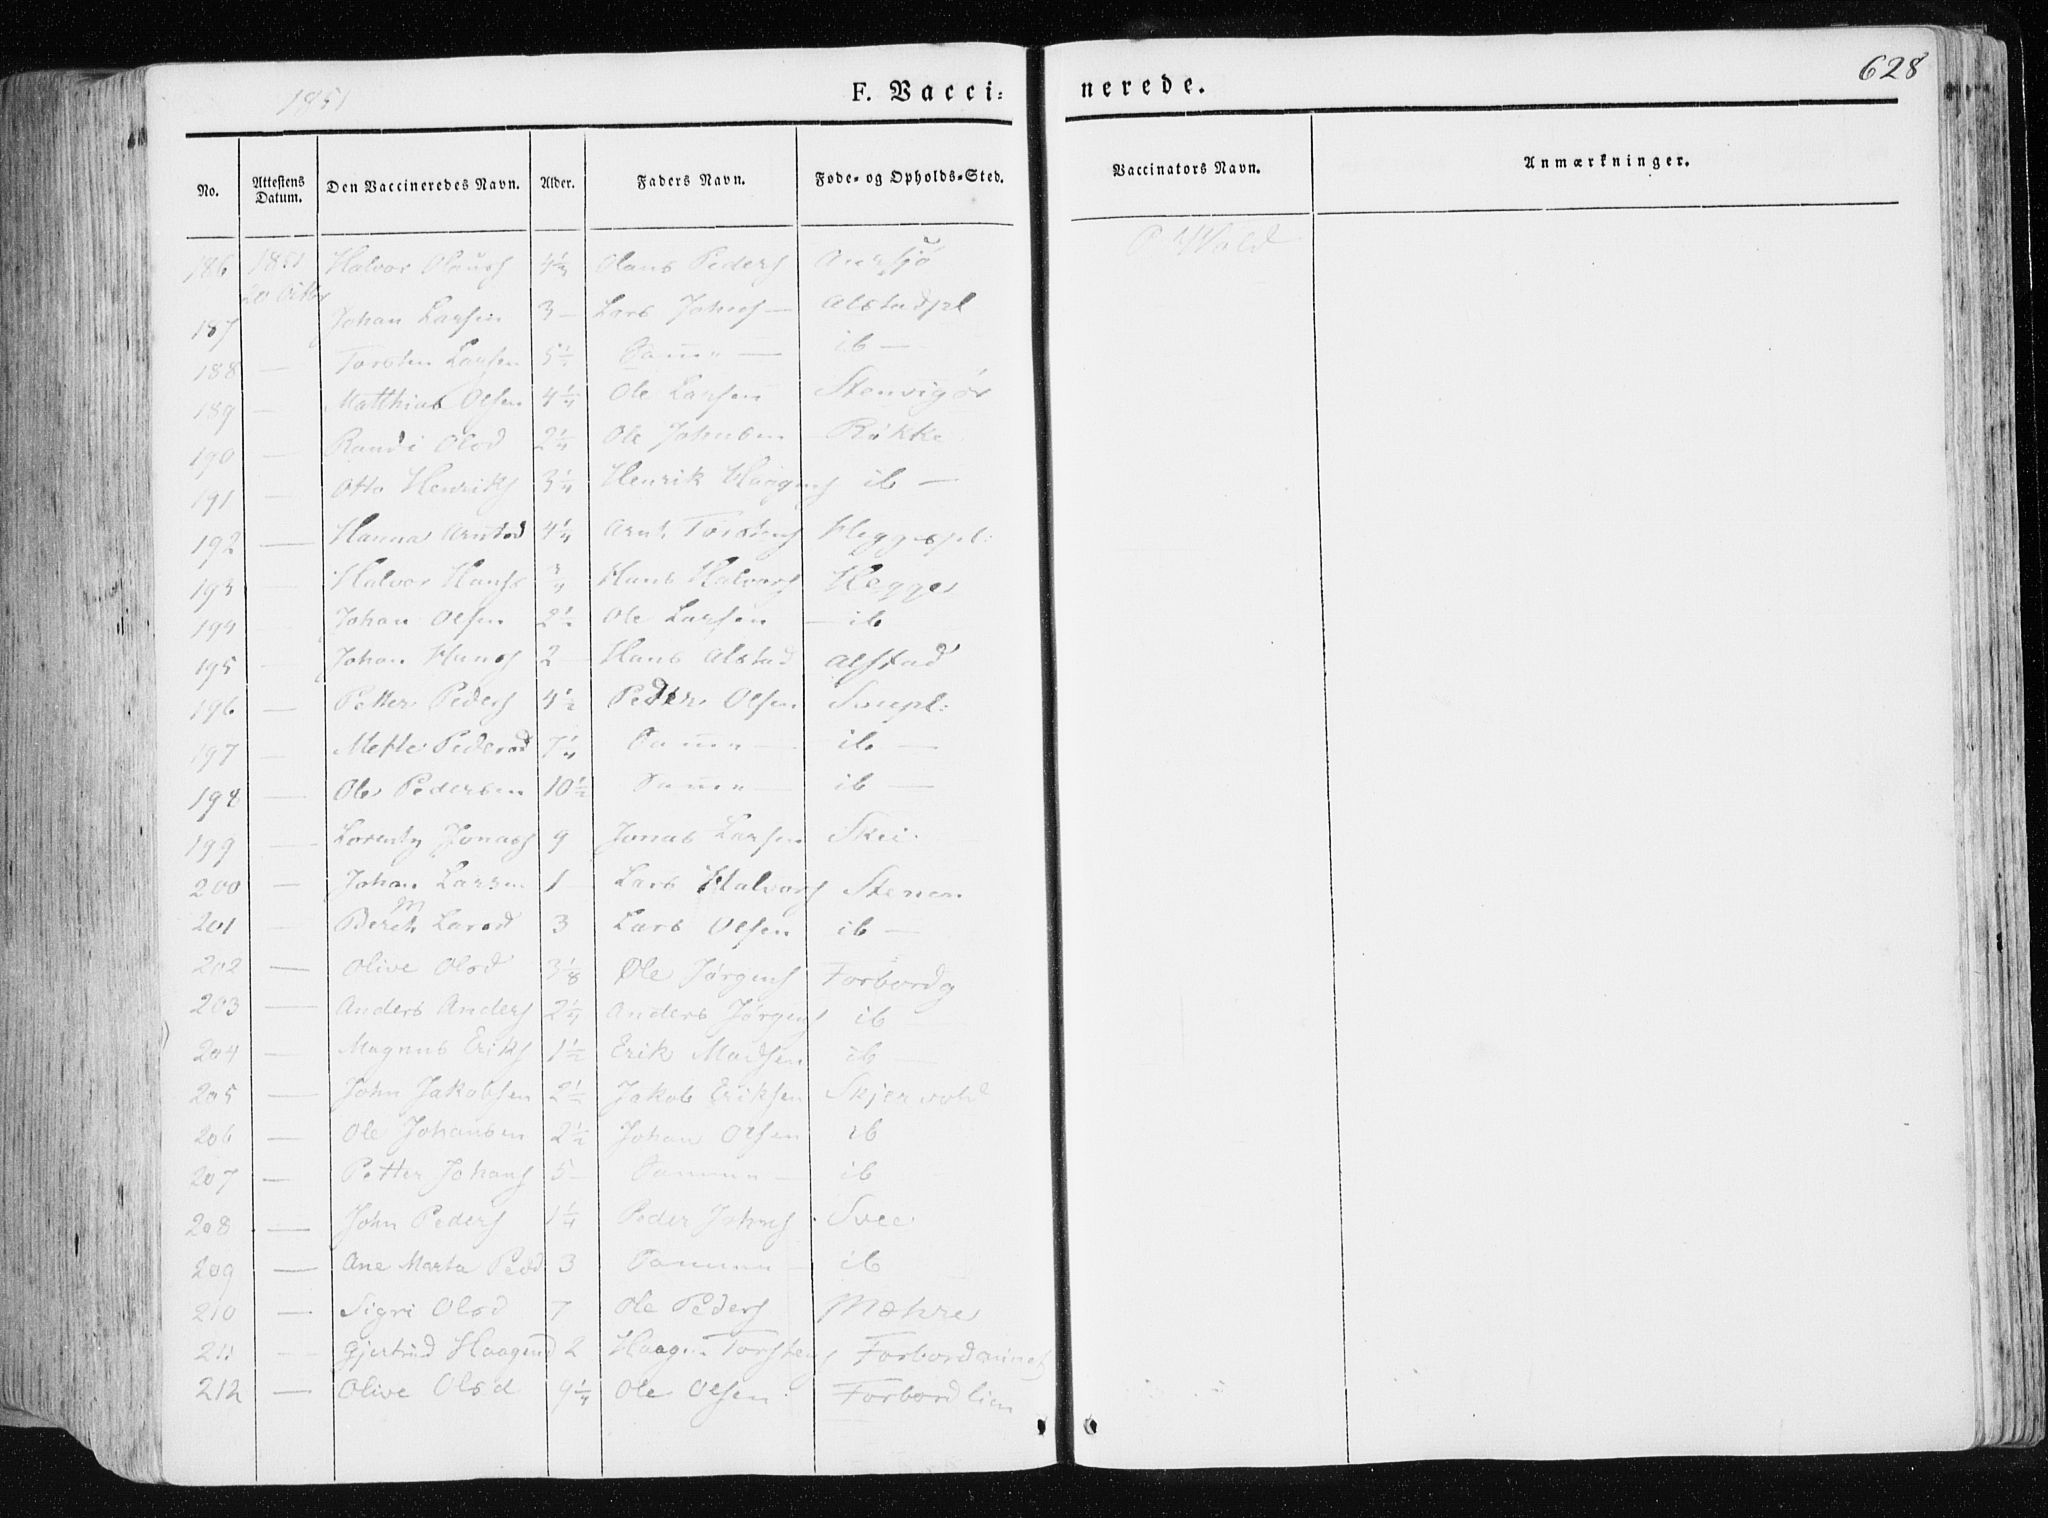 1851 F. Vacci= nerede. 628
No. Attestens Datum. Den Vaccineredes Navn. Alder. Faders Navn. Føde- og Opholds-Sted. Vaccinators Navn. Anmærkninger.
186 1851 20 Octbr Halvor Olaus 4 Olaus Peders P Wold
187 Johan Larsen 3 — Lars Johns — Alstadpl
188 — Torsten Larsen 5½ Samme — ib —
189 — Matthias Olsen 4¼ Ole Larsen Stenvigør
190 — Randi Olsd 2¼ Ole Johnsen Røkke
191 — Otto Henriks 3¼ Henrik Haagens ib —
192 — Hanna Arntsd 4¼ Arnt Torstens Heggespl:
193 — Halvor Hanss ¾ Hans Halvors Hegge
194 — Johan Olsen 2½ Ole Larsen — ib
195 — Johan Hans 2 — Hans Alstad Alstad
196 — Petter Peders 4½ Peder Olsen
197 — Mette Pedersd 7¼ Samme — ib —
198 — Ole Pedersen 10½ Samme — ib —
199 — Lorents Jonas 9 Jonas Larsen Skei
200 — Johan Larsen 1 — Lars Halvors Stenen
201 — Bereth M Larsd 3 Lars Olsen ib —
202 — Olive Olsd 3⅛ Ole Jørgens Forbordg
203 — Anders Anders 2¼ Anders Jørgens ib —
204 — Magnus Eriks 1½ Erik Madsen ib —
205 — John Jakobsen 2½ Jakob Eriksen Skjervold
206 — Ole Johansen 2½ Johan Olsen ib
207 — Petter Johans 5 — Samme — ib
208 — John Peders 1¼ Peder Johns Svee
209 — Ane Marta Pedd 3 Samme — ib
210 — Sigri Olsd 7 Ole Peders Mæhre
211 — Gjertrud Haagensd 2 Haagen Torstens
212 — Olive Olsd 9¼ Ole Olsen Forbordlien